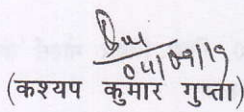 04/09/19
(कश्यप कुमार गुप्ता)